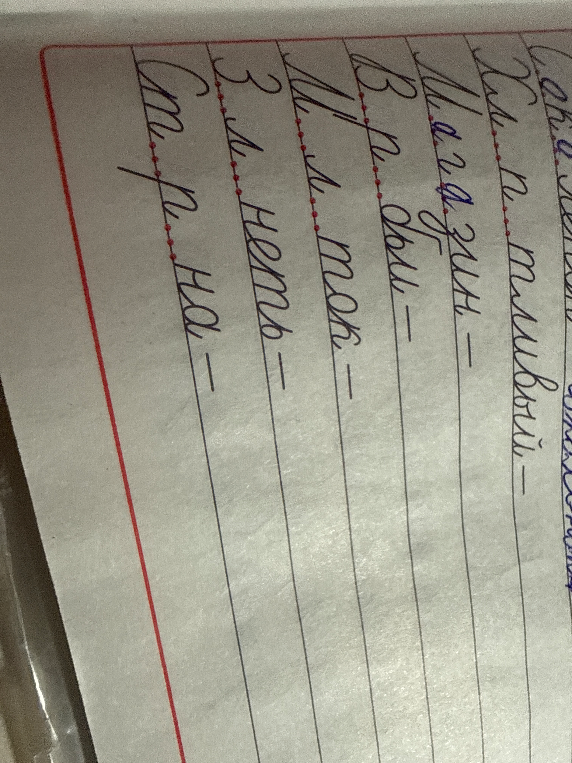 Хл...п...тливый –
Магазин –
В...р...бьи –
М...л...ток –
З...л...неть –
Ст...р...на –